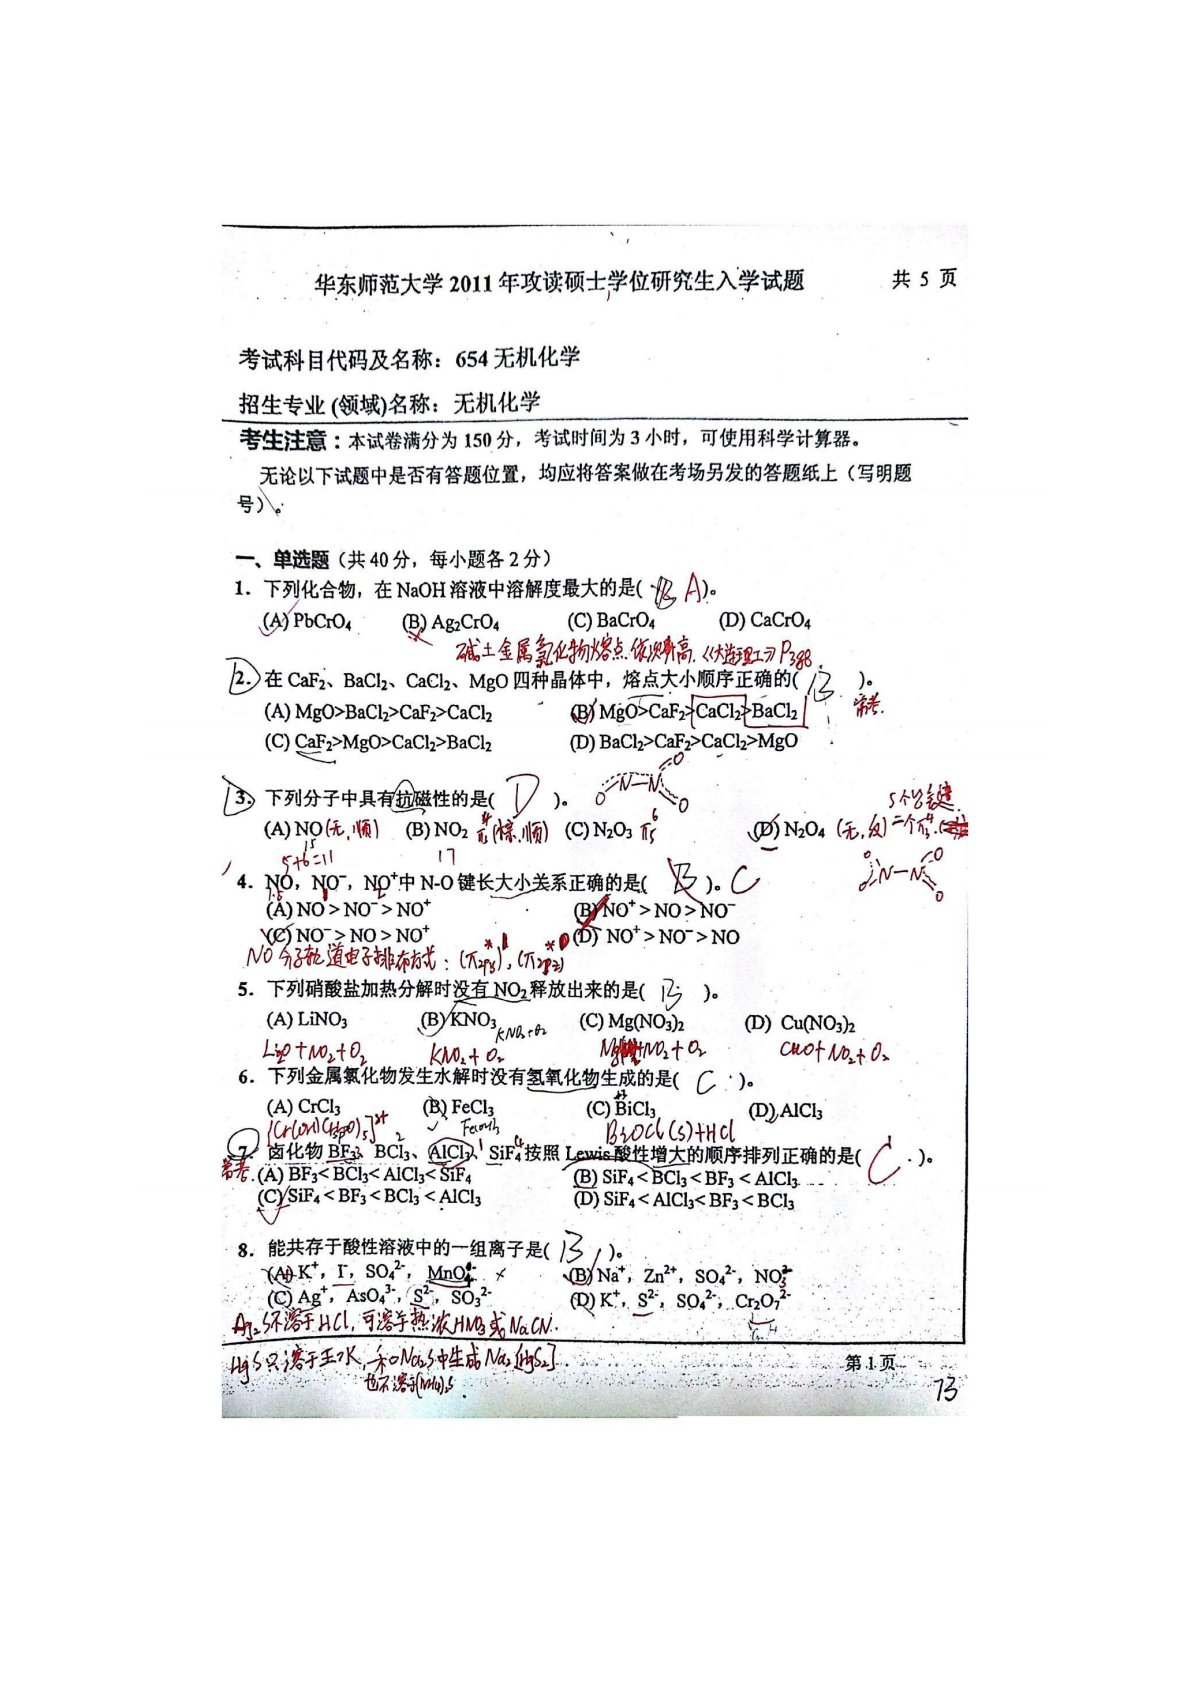 华东师范大学 2011 年攻读硕士学位研究生入学试题 共 5 页
考试科目代码及名称：654 无机化学
招生专业 (领域)名称：无机化学
考生注意：本试卷满分为 150 分，考试时间为 3 小时，可使用科学计算器。
无论以下试题中是否有答题位置，均应将答案做在考场另发的答题纸上（写明题
号）。
一、单选题（共 40 分，每小题各 2 分）
1. 下列化合物，在 NaOH 溶液中溶解度最大的是( B A )。
(A) PbCrO₄ (B) Ag₂CrO₄ (C) BaCrO₄ (D) CaCrO₄
碱土金属氯化物熔点依次升高.《大连理工》P388.
2. 在 CaF₂、BaCl₂、CaCl₂、MgO 四种晶体中，熔点大小顺序正确的( B )。
常考.
(A) MgO>BaCl₂>CaF₂>CaCl₂ (B) MgO>CaF₂>CaCl₂>BaCl₂
(C) CaF₂>MgO>CaCl₂>BaCl₂ (D) BaCl₂>CaF₂>CaCl₂>MgO
3. 下列分子中具有抗磁性的是( D )。
(A) NO (无,顺) (B) NO₂ (棕.顺) (C) N₂O₃ (D) N₂O₄
15
5+6=11 17
4. NO，NO⁻，NO⁺中 N-O 键长大小关系正确的是( B )。C
(A) NO > NO⁻ > NO⁺ (B) NO⁺ > NO > NO⁻
(C) NO⁻ > NO > NO⁺ (D) NO⁺ > NO⁻ > NO
NO 分子轨道电子排布方式：
5. 下列硝酸盐加热分解时没有 NO₂ 释放出来的是( B )。
(A) LiNO₃ (B) KNO₃ (C) Mg(NO₃)₂ (D) Cu(NO₃)₂
KNO₂+O₂
Li₂O+NO₂+O₂ KNO₂+O₂ +NO₂+O₂ CuO+NO₂+O₂
6. 下列金属氯化物发生水解时没有氢氧化物生成的是( C )。
(A) CrCl₃ (B) FeCl₃ (C) BiCl₃ (D) AlCl₃
[Cr(OH)(H₂O)₅]²⁺ BiOCl(s)+HCl
7. 卤化物 BF₃、BCl₃、AlCl₃、SiF₄ 按照 Lewis 酸性增大的顺序排列正确的是( C )。
常考.
(A) BF₃< BCl₃< AlCl₃< SiF₄ (B) SiF₄ < BCl₃ < BF₃ < AlCl₃
(C) SiF₄ < BF₃ < BCl₃ < AlCl₃ (D) SiF₄ < AlCl₃< BF₃ < BCl₃
8. 能共存于酸性溶液中的一组离子是( B )。
(A) K⁺，I⁻，SO₄²⁻，MnO₄⁻ × (B) Na⁺，Zn²⁺，SO₄²⁻，NO₃⁻
(C) Ag⁺，AsO₄³⁻，S²⁻，SO₃²⁻ (D) K⁺，S²⁻，SO₄²⁻，Cr₂O₇²⁻
Ag₂S不溶于HCl,可溶于热浓HNO₃或NaCN.
HgS只溶于王水,和Na₂S中生成Na₂[HgS₂].
也不溶于(NH₄)₂S
第 1 页
73